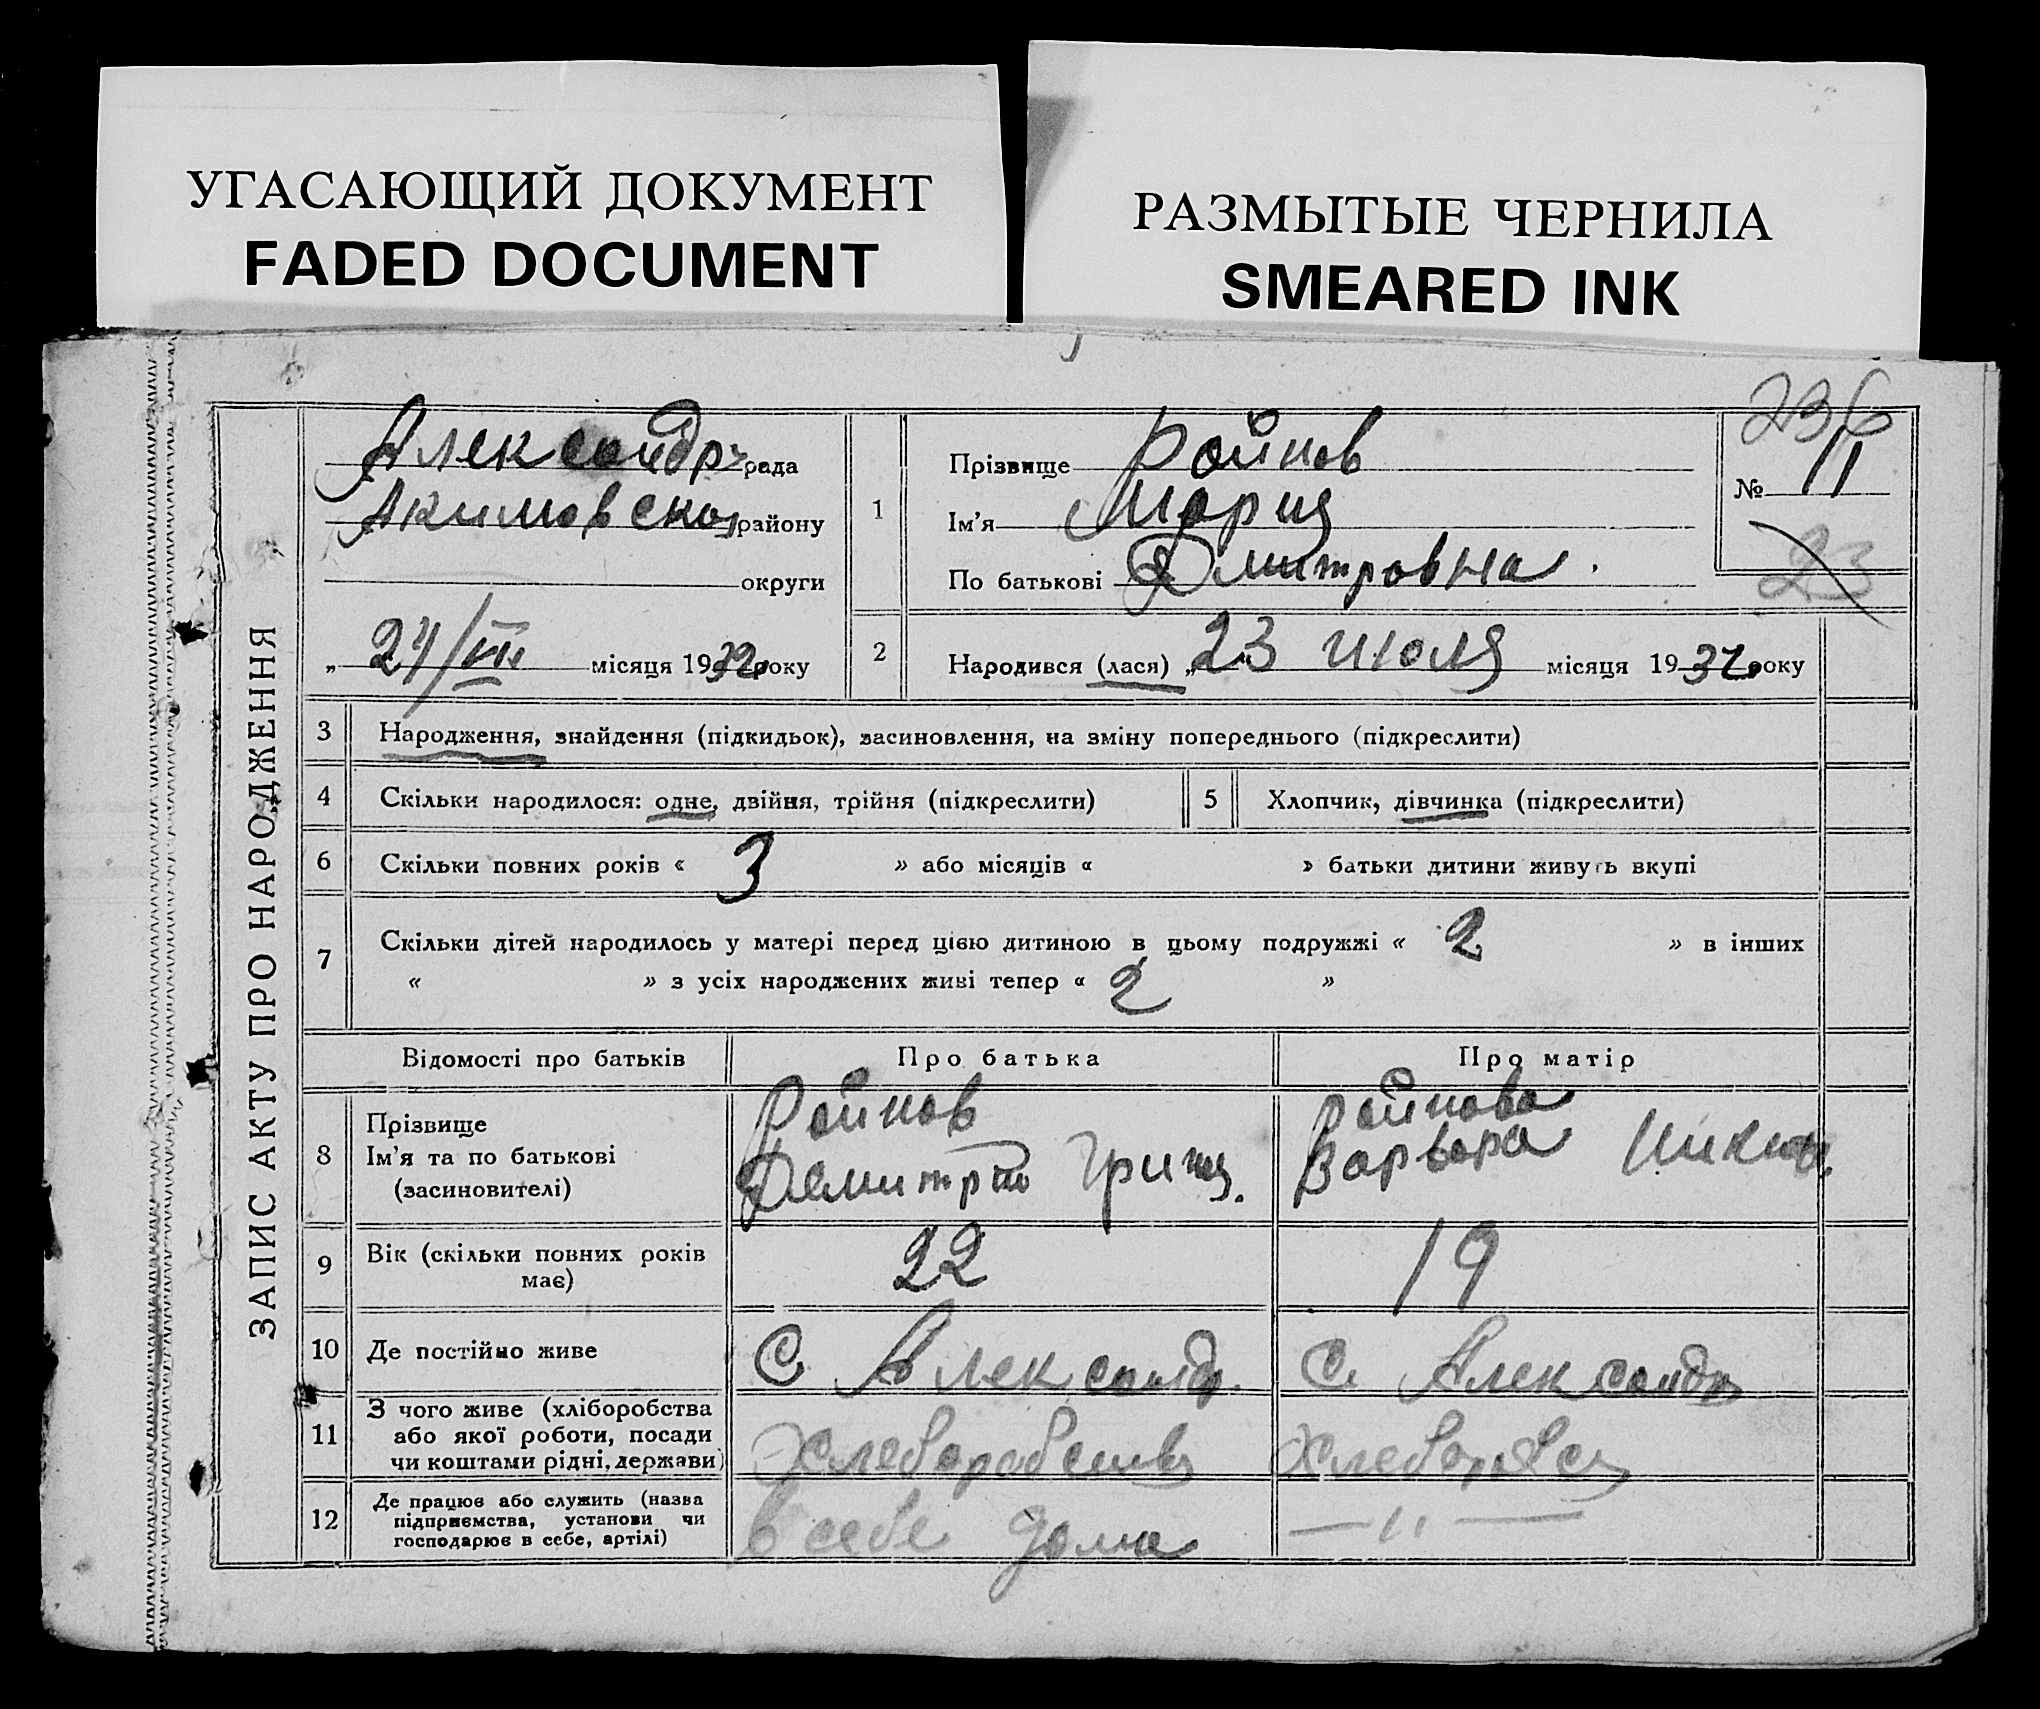 УГАСАЮЩИЙ ДОКУМЕНТ
FADED DOCUMENT
РАЗМЫТЫЕ ЧЕРНИЛА
SMEARED INK
ЗАПИС АКТУ ПРО НАРОДЖЕННЯ
Александр рада
Акимовско району
округи
„ 24/VII місяця 1932 року
1
Прізвище Ройнов
Ім'я Мария
По батькові Дмитровна.
236
№ 11
23
2
Народився (лася) „ 23 июля місяця 1932 року
3 Народження, знайдення (підкидьок), засиновлення, на зміну попереднього (підкреслити)
4 Скільки народилося: одне, двійня, трійня (підкреслити) 5 Хлопчик, дівчинка (підкреслити)
6 Скільки повних років « 3 » або місяців « » батьки дитини живуть вкупі
7 Скільки дітей народилось у матері перед цією дитиною в цьому подружжі « 2 » в інших
« » з усіх народжених живі тепер « 2 »
Відомості про батьків Про батька Про матір
8 Прізвище
Ім'я та по батькові
(засиновителі)
Ройнов
Демитрий Григ.
Ройнова
Варвара Никит.
9 Вік (скільки повних років
має)
22 19
10 Де постійно живе С Александр. С. Александр
11 З чого живе (хліборобства
або якої роботи, посади
чи коштами рідні, держави)
Хлеборобства
12 Де працює або служить (назва
підприємства, установи чи
господарює в себе, артілі)
в себе дома — " —